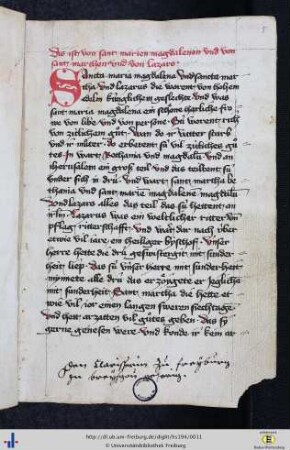 Dis ist von sant marien magdalenen vnd von
sant marthen vnd von lazaro
Sancta maria magdalena vnd sancta mar
tha vnd lazarus die worent von hohem
edelm künglichem geslechte vnd was
sant maria magdalena ein schöne
von libe vnd von Sú worent rich
von zitlichem gůt Wan do ir vatter starb
vnd ir můter do erbetent sú vil zitliches gů
tes In wart Bethania vnd magdalū vnd an
iherusalem ein groß teil vnd das teiltent sú
vnder sich in drú vnd wart sant martha be
thania vnd sant marie magdalene magdalū
vnd lazaro alles das teil das sú hettent an
irlm Lazarus was ein weltlicher ritter vn
pflag ritterschafft vnd wart dar nach über
etwie vil iare ein heiliger byschof Vnser
herre hette die drú geswistergit mit sunder
heit liep das sú vnser herre mit sunderheit
mynnete alle drú das er zögete er iegliche
mit sunderheit Sant martha die hette et
wie vil ior einen langen sweren siechtage
vnd hett artzatten vil gůtes geben das sy
gerne genesen were vnd konde ir kein ar
den Clarissen zu freyburg
zu breyßgow gehörig
http://dl.ub.uni-freiburg.de/diglit/hs194/0011
© Universitätsbibliothek Freiburg